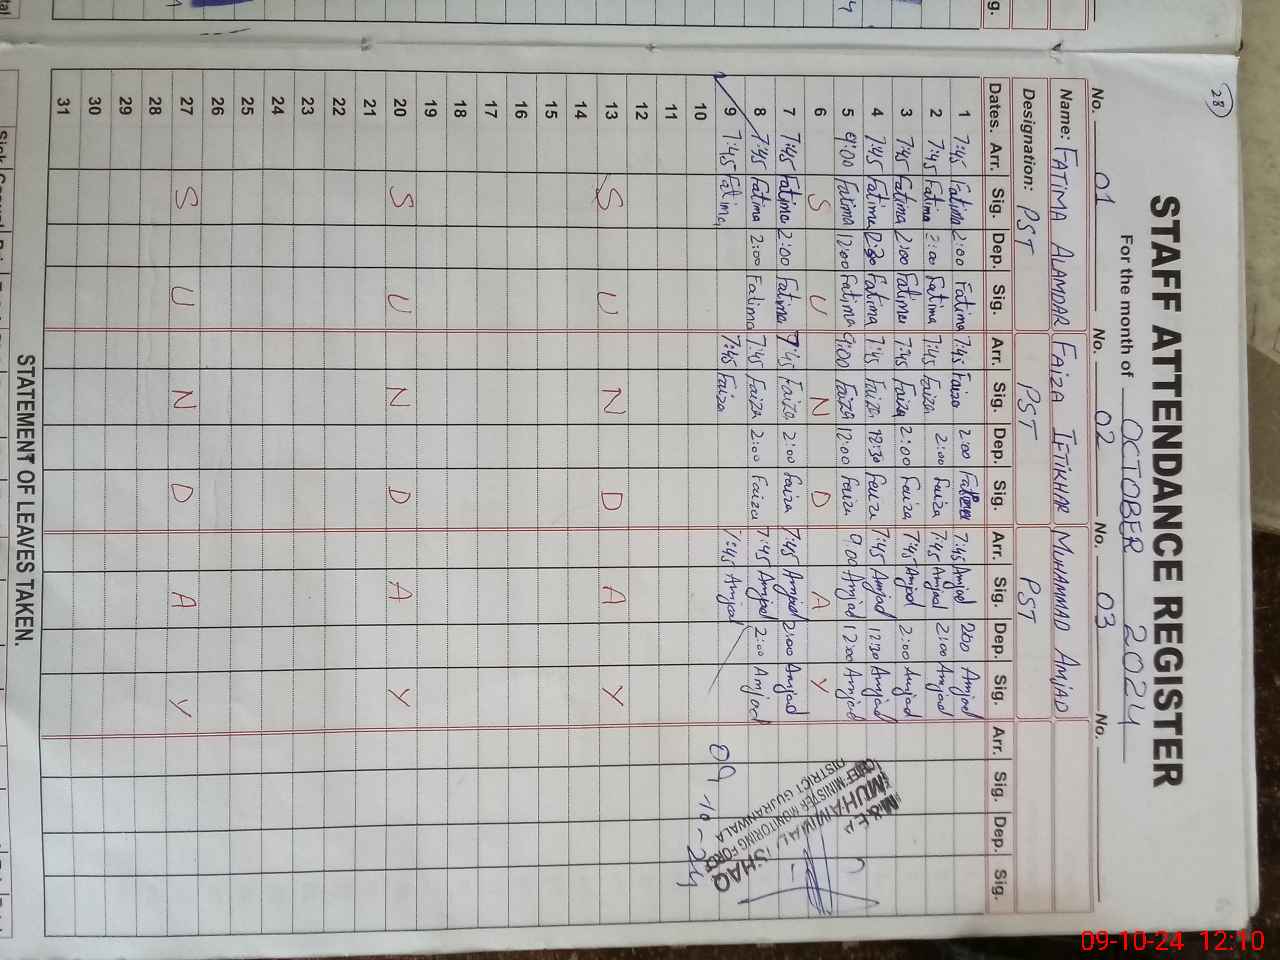 28
STAFF ATTENDANCE REGISTER
For the month of OCTOBER 2024
No. 01 No. 02 No. 03 No.
Name: FATIMA ALAMDAR FAIZA IFTIKHAR MUHAMMAD AMJAD
Designation: PST PST PST
Dates. Arr. Sig. Dep. Sig. Arr. Sig. Dep. Sig. Arr. Sig. Dep. Sig. Arr. Sig. Dep. Sig.
1 7:45 Fatima 2:00 Fatima 7:45 Faiza 2:00 7:45 Amjad 200 Amjad
2 7:45 Fatima 2:00 Fatima 7:45 Faiza 2:00 Faiza 7:45 Amjad 2:00 Amjad
3 7:45 Fatima 2:00 Fatima 7:45 Faiza 2:00 Faiza 7:45 Amjad 2:00 Amjad
4 7:45 Fatima Fatima 7:45 Faiza 12:30 Faiza 7:45 Amjad 12:30 Amjad
5 9:00 Fatima 12:00 Fatima 9:00 Faiza 12:00 Faiza 9:00 Amjad 12:00 Amjad
6 S U N D A Y
7 7:45 Fatima 2:00 Fatima 7:45 Faiza 2:00 Faiza 7:45 Amjad 2:00 Amjad
8 7:45 Fatima 2:00 Fatima 7:45 Faiza 2:00 Faiza 7:45 Amjad 2:00 Amjad
9 7:45 Fatima 7:45 Faiza 7:45 Amjad
10
11
12
13 S U N D A Y
14
15
16
17
18
19
20 S U N D A Y
21
22
23
24
25
26
27 S U N D A Y
28
29
30
31
M&EA
MUHAMMAD ISHAQ
CHIEF MINISTER MONITORING FORCE
DISTRICT GUJRANWALA
09-10-24
STATEMENT OF LEAVES TAKEN.
09-10-24 12:10